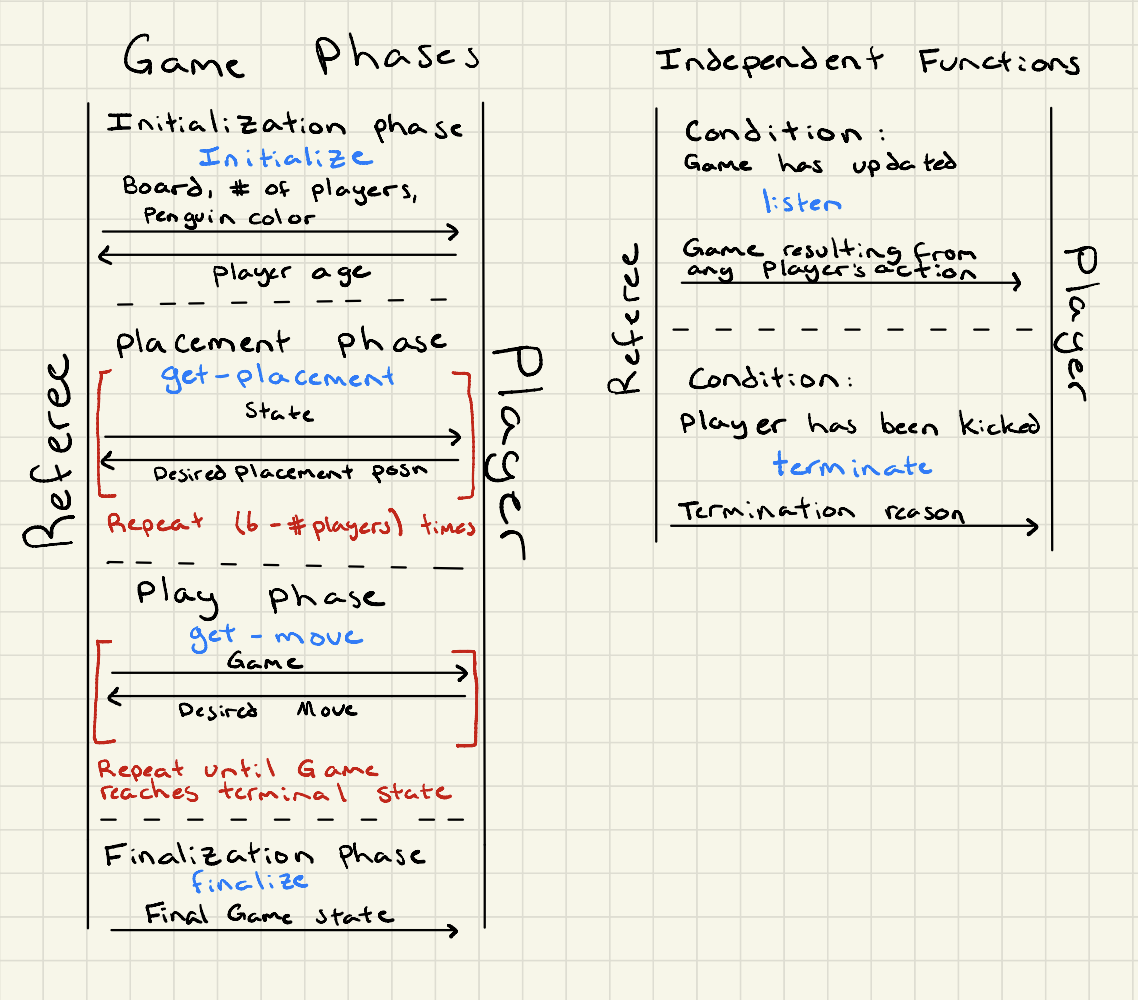 Game Phases
Initialization phase
Initialize
Board, # of players,
Penguin color
player age
Placement phase
get-placement
State
Desired placement posn
Repeat (6 - # players) times
Play phase
get-move
Game
Desired Move
Repeat until Game
reaches terminal state
Finalization phase
finalize
Final Game state
Referee
Player
Independent Functions
Condition:
Game has updated
listen
Game resulting from
any player's action
Condition:
player has been kicked
terminate
Termination reason
Referee
Player